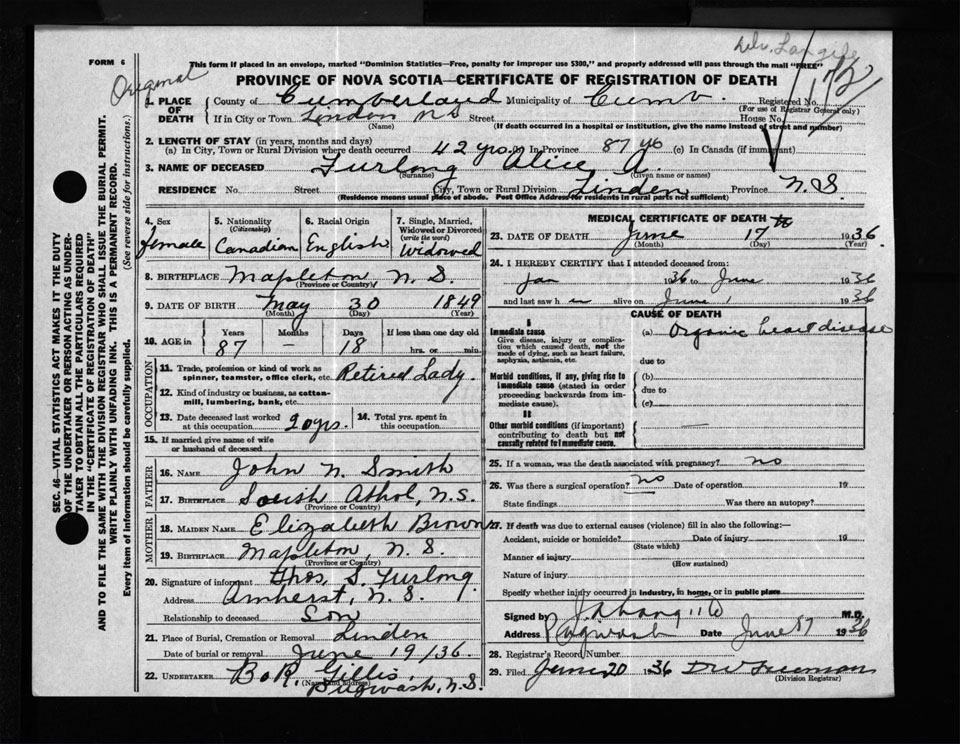 FORM 6
This form if placed in an envelope, marked "Dominion Statistics—Free, penalty for improper use $300," and properly addressed will pass through the mail "FREE"
Original
PROVINCE OF NOVA SCOTIA—CERTIFICATE OF REGISTRATION OF DEATH
1. PLACE OF DEATH County of Cumberland Municipality of Cumb. Registered No.
(For use of Registrar General only)
If in City or Town Linden N S Street House No.
(Name) (If death occurred in a hospital or institution, give the name instead of street and number)
2. LENGTH OF STAY (in years, months and days)
(a) In City, Town or Rural Division where death occurred 42 yrs. (b) In Province 87 (c) In Canada (if immigrant)
3. NAME OF DECEASED Furlong Alice
(Surname) (Given name or names)
RESIDENCE No. Street City, Town or Rural Division Linden Province N.S
(Residence means usual place of abode. Post Office Address for residents in rural parts not sufficient)
4. Sex female
5. Nationality (Citizenship) Canadian
6. Racial Origin English
7. Single, Married, Widowed or Divorced (write the word) Widowed
8. BIRTHPLACE Mapleton N. S.
(Province or Country)
9. DATE OF BIRTH May 30 1849
(Month) (Day) (Year)
10. AGE in Years Months Days If less than one day old
87 – 18 hrs. or min.
OCCUPATION
11. Trade, profession or kind of work as spinner, teamster, office clerk, etc. Retired Lady.
12. Kind of industry or business, as cotton-mill, lumbering, bank, etc.
13. Date deceased last worked at this occupation 20 yrs. 14. Total yrs. spent in this occupation
15. If married give name of wife or husband of deceased
FATHER
16. NAME John N. Smith
17. BIRTHPLACE South Athol, N.S.
(Province or Country)
MOTHER
18. MAIDEN NAME Elizabeth Brown
19. BIRTHPLACE Mapleton, N. S.
(Province or Country)
20. Signature of informant Thos. S. Furlong
Address Amherst, N. S.
Relationship to deceased Son
21. Place of Burial, Cremation or Removal Linden
Date of burial or removal June 19/36.
22. UNDERTAKER Gillis,
(Name and address) Pugwash, N.S.
MEDICAL CERTIFICATE OF DEATH
23. DATE OF DEATH June 17th 1936.
(Month) (Day) (Year)
24. I HEREBY CERTIFY that I attended deceased from:
Jan 1936 to June 1936
and last saw h alive on June 1936
CAUSE OF DEATH
I
Immediate cause
Give disease, injury or complication which caused death, not the mode of dying, such as heart failure, asphyxia, asthenia, etc.
(a) Organic heart disease
due to
Morbid conditions, if any, giving rise to immediate cause (stated in order proceeding backwards from immediate cause).
(b)
due to
(c)
II
Other morbid conditions (if important) contributing to death but not causally related to immediate cause.
25. If a woman, was the death associated with pregnancy? no
26. Was there a surgical operation? no Date of operation 19
State findings Was there an autopsy?
27. If death was due to external causes (violence) fill in also the following:—
Accident, suicide or homicide? Date of injury 19
(State which)
Manner of injury
(How sustained)
Nature of injury
Specify whether injury occurred in industry, in home, or in public place
Signed by M.D.
Address Pugwash Date June 1936
28. Registrar's Record Number
29. Filed June 20 1936 Freeman
(Division Registrar)
SEC. 46—VITAL STATISTICS ACT MAKES IT THE DUTY
OF THE UNDERTAKER OR PERSON ACTING AS UNDER-
TAKER TO OBTAIN ALL THE PARTICULARS REQUIRED
IN THE "CERTIFICATE OF REGISTRATION OF DEATH"
AND TO FILE THE SAME WITH THE DIVISION REGISTRAR WHO SHALL ISSUE THE BURIAL PERMIT.
WRITE PLAINLY WITH UNFADING INK. THIS IS A PERMANENT RECORD.
Every item of information should be carefully supplied. (See reverse side for instructions.)